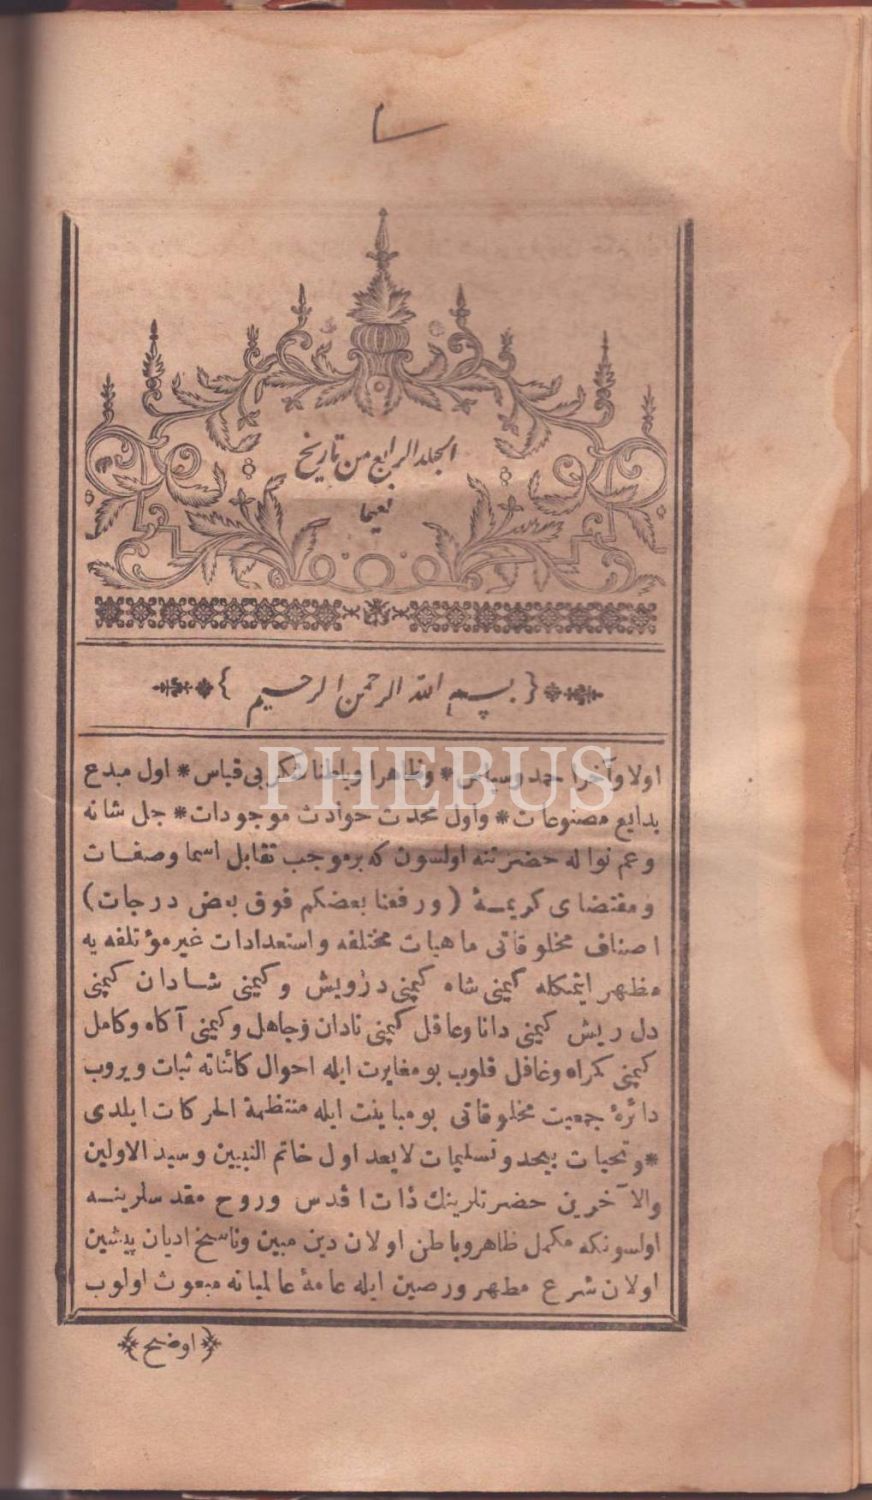 الجلد الرابع من تاريخ
نعيما
بسم الله الرحمن الرحيم
PHEBUS
اولا وآخرا حمد وسپاس * وظاهرا وباطنا شكر بى قياس * اول مبدع
بدايع مصنوعات * واول محدث حوادث موجودات * جل شانه
وعم نواله حضرتنه اولسون كه بر موجب تقابل اسما وصفات
ومقتضاى كريمهٔ (ورفعنا بعضكم فوق بعض درجات)
اصناف مخلوقاتى ماهيات مختلفه واستعدادات غير مؤتلفه يه
مظهر ايتمكله كيمنى شاه كيمنى درويش وكيمنى شادان كيمنى
دل ريش كيمنى دانا وعاقل كيمنى نادان وجاهل وكيمنى آكاه وكامل
كيمنى كمراه وغافل قلوب بو مغايرت ايله احوال كائناته ثبات ويروب
دائرهٔ جمعيت مخلوقاتى بو مباينت ايله منتظمة الحركات ايلدى
* وتحيات بيحد وتسليمات لا يعد اول خاتم النبيين وسيد الاولين
والآخرين حضرتلرينك ذات اقدس وروح مقدسلرينه
اولسونكه مكمل ظاهر وباطن اولان دين مبين وناسخ اديان پيشين
اولان شرع مطهر ورصين ايله عامهٔ عالميانه مبعوث اولوب
(اوضح)